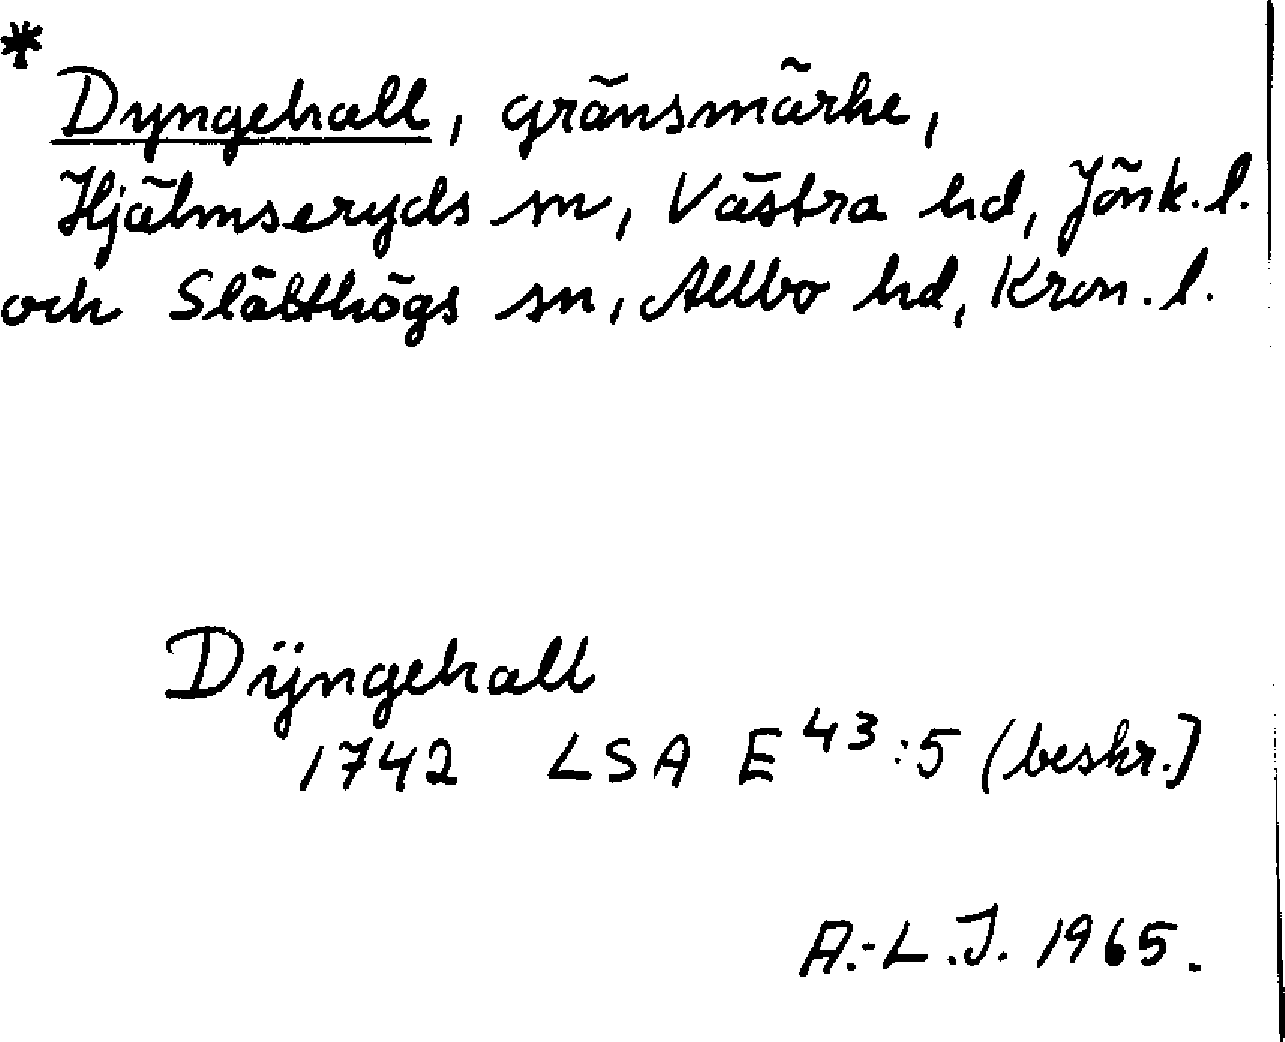 *
Dyngehall, gränsmärke,
Hjälmseryds sn, Västra hd, Jönk. l.
och Slätthögs sn, Allbo hd, Kron. l.
Dÿngehall
1742 LSA E 43:5 (beskr.)
A.-L.J. 1965.